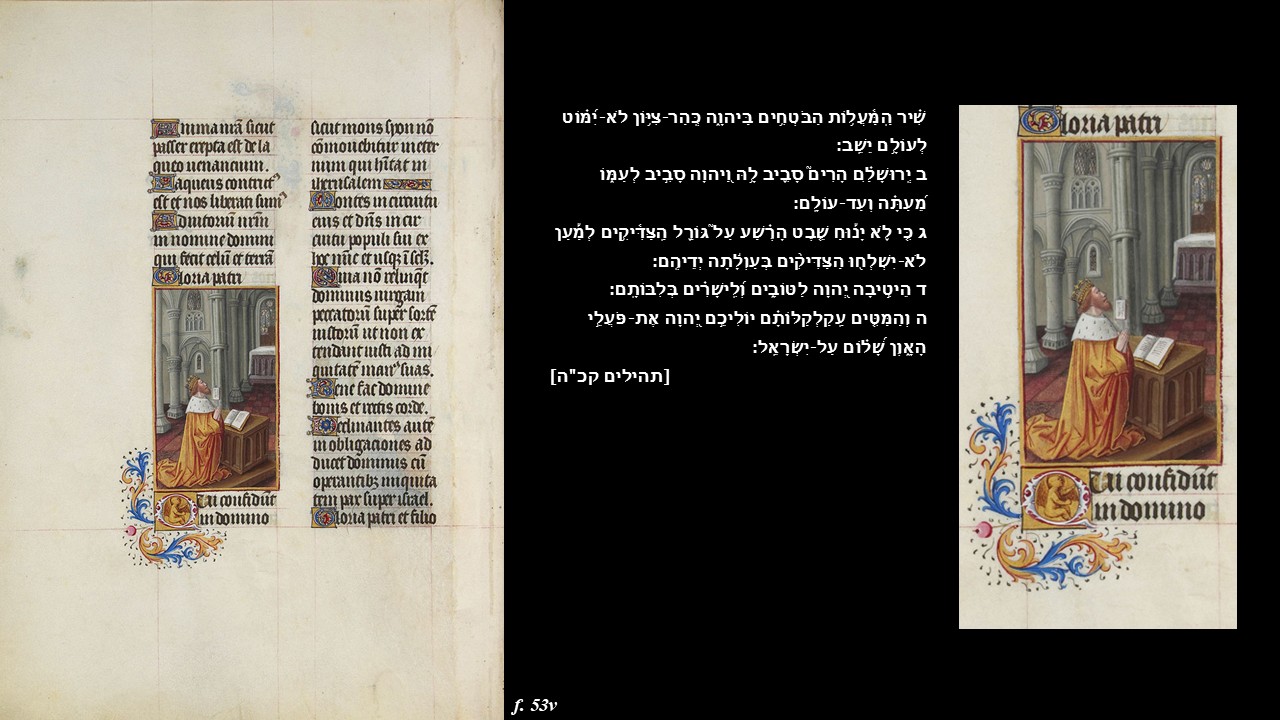 Anima nr̄a sicut
passer erepta est de la
queo uenantium.
Laqueus contrit⁹
est et nos liberati sum⁹
Adiutoriū nr̄m
in nomine domini
qui fecit celū et terrā
Gloria patri
Qui confidūt
in domino
sicut mons syon nō
cōmouebitur in eter
num qui hītat in
iherusalem
Montes in circuitu
eius et dn̄s in cir
cuitu populi sui ex
hoc nūc et usq̧ ī sclm̄.
Quia nō relinq̄t
dominus uirgam
peccatorū super sortē
iustorū ut non ex
tendant iusti ad ini
quitatē man⁹ suas.
Bene fac domine
bonis et rectis corde.
Declinantes autē
in obligaciones ad
ducet dominus cū
operantibȝ iniquita
tem pax super israel.
Gloria patri et filio
שִׁ֗יר הַֽמַּ֫עֲל֥וֹת הַבֹּטְחִ֥ים בַּיהוָ֑ה כְּֽהַר-צִיּ֥וֹן לֹא-יִ֝מּ֗וֹט
לְעוֹלָ֥ם יֵשֵֽׁב:
ב יְֽרוּשָׁלִַ֗ם הָרִים֮ סָבִ֪יב לָ֥הּ וַ֭יהוָה סָבִ֣יב לְעַמּ֑וֹ
מֵ֝עַתָּ֗ה וְעַד-עוֹלָֽם:
ג כִּ֤י לֹ֪א יָנ֡וּחַ שֵׁ֤בֶט הָרֶ֗שַׁע עַל֮ גּוֹרַ֪ל הַֽצַּדִּ֫יקִ֥ים לְמַ֡עַן
לֹא-יִשְׁלְח֖וּ הַצַּדִּיקִ֨ים בְּעַוְלָ֬תָה יְדֵיהֶֽם:
ד הֵיטִ֣יבָה יְ֭הוָה לַטּוֹבִ֑ים וְ֝לִֽישָׁרִ֗ים בְּלִבּוֹתָֽם:
ה וְהַמַּטִּ֤ים עַֽקַלְקַלּוֹתָ֗ם יוֹלִיכֵ֣ם יְ֭הוָה אֶת-פֹּעֲלֵ֣י
הָאָ֑וֶן שָׁ֝ל֗וֹם עַל-יִשְׂרָאֵֽל:
[תהילים קכ"ה]
Gloria patri
Qui confidūt
in domino
f. 53v